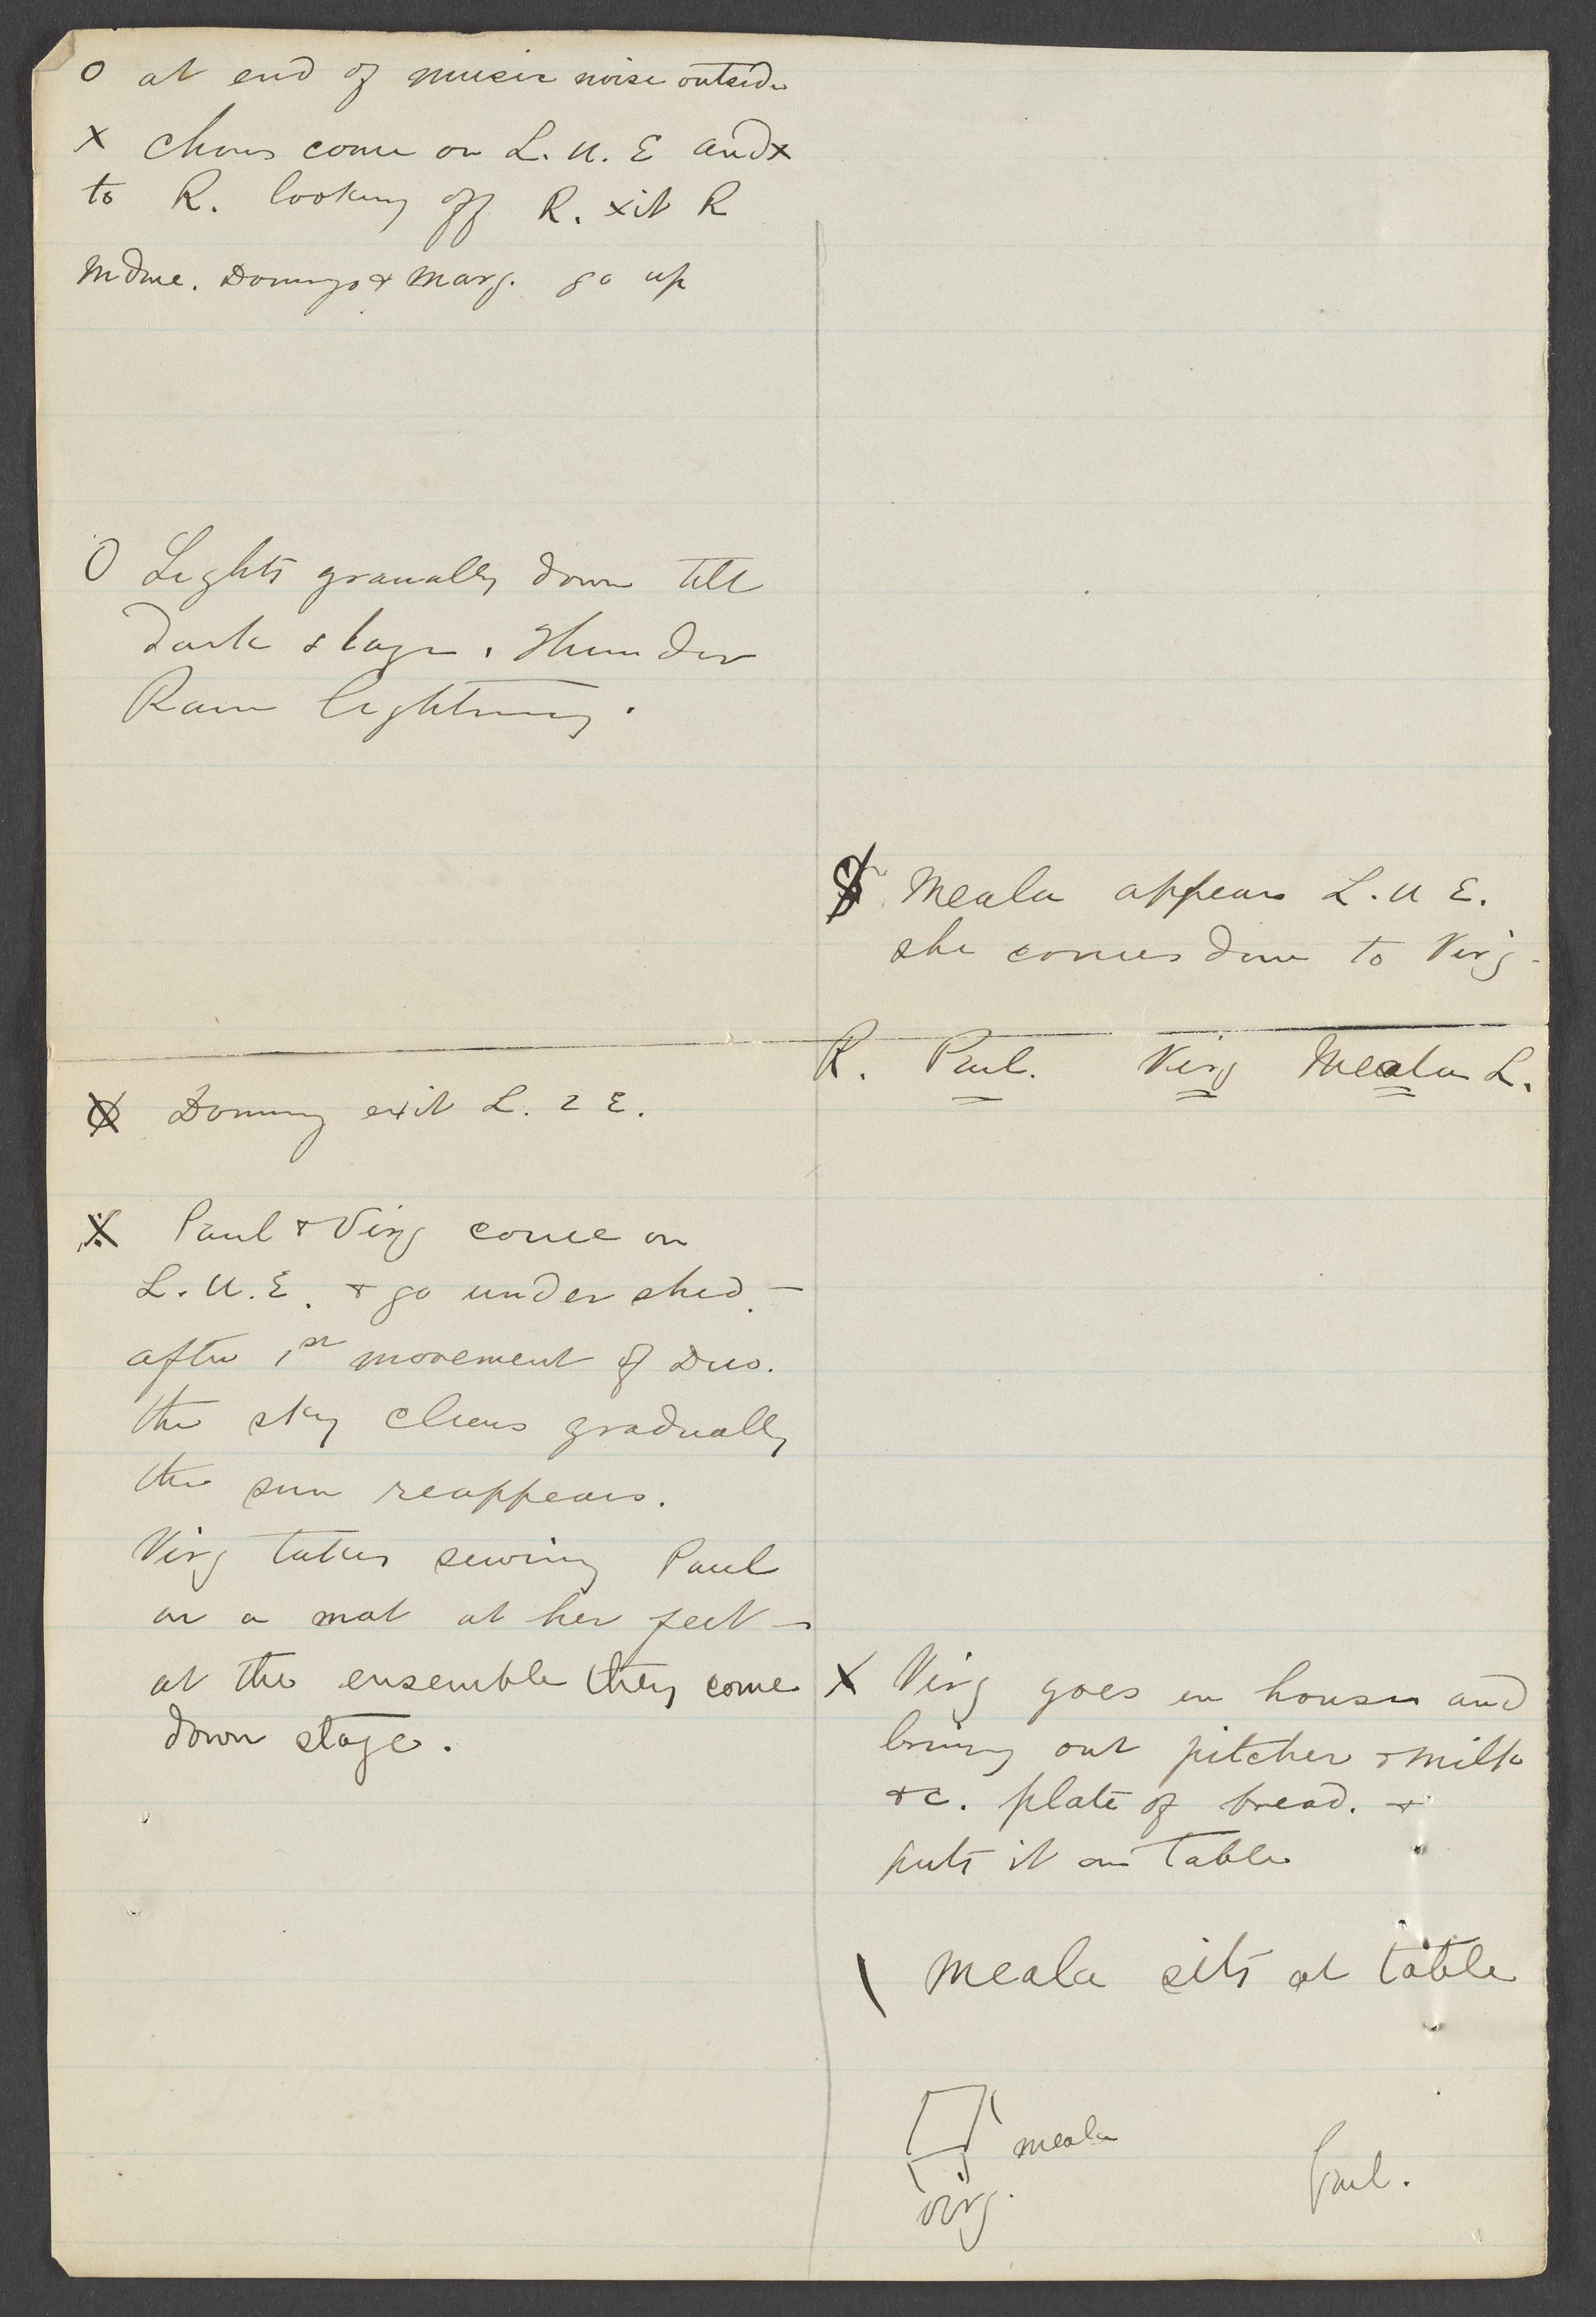 O at end of music noise outside
X Chorus come on L. U. E and x
to R. looking off R. xit R
Mdme. Domingo & Marg. go up
O Lights granally down till
dark stage. Thunder
Rain lightning.
Domng exit L. 2 E.
X Paul & Virg come on
L. U. E. & go under shed. —
after 1st movement of Duo.
the sky clears gradually
the sun reappears.
Virg takes sewing Paul
on a mat at her feet —
at the ensemble they come
down stage.
Meala appears L. U E.
she comes down to Virg -
R. Paul. Virg Meala L.
X Virg goes in house and
bring out pitcher & milk
&c. plate of bread. &
puts it on table
\ Meala sits at table
meala
virg.
Paul.